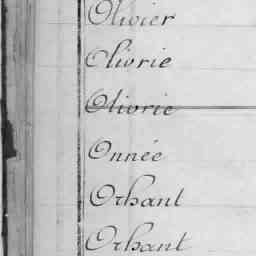 Olivier
Olivrie
Olivrie
Onnée
Orhant
Orhant